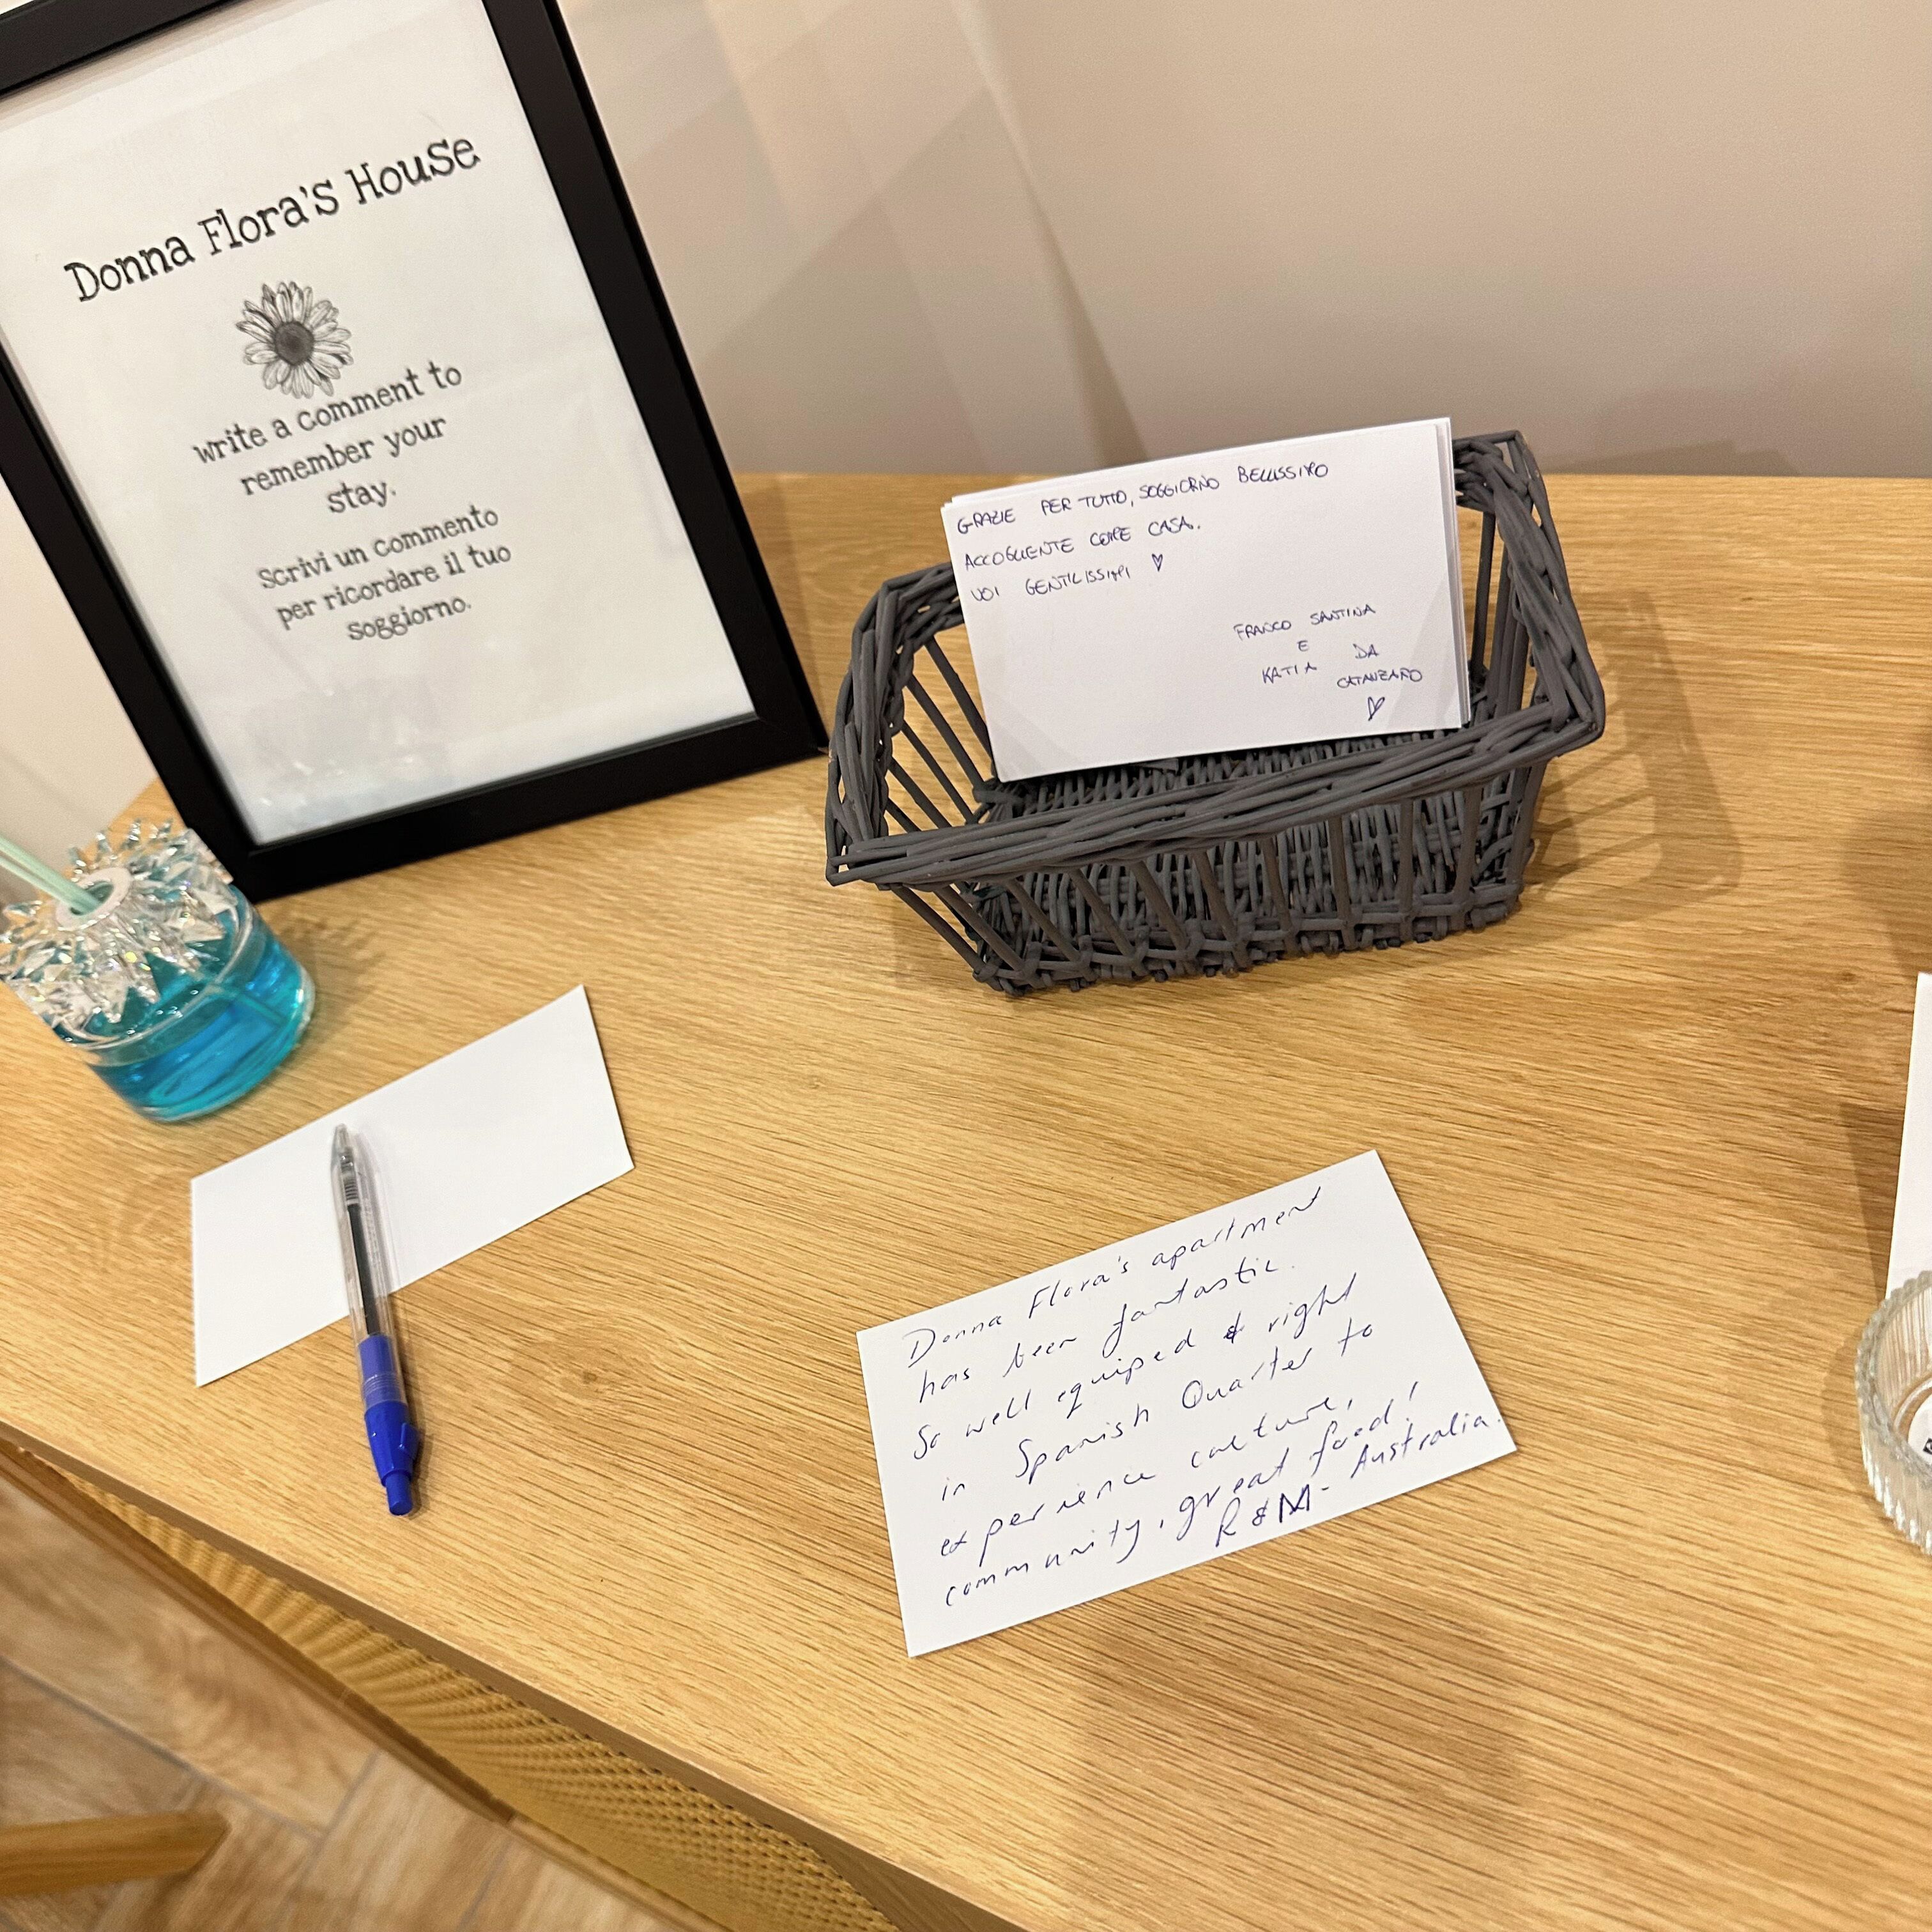 Donna Flora's House
write a comment to
remember your
stay.
Scrivi un commento
per ricordare il tuo
soggiorno.
GRAZIE PER TUTTO, SOGGIORNO BELLISSIMO
ACCOGLIENTE COME CASA.
VOI GENTILISSIMI ♡
FRANCO SANTINA
E
KATIA DA
CATANZARO
♡
Donna Flora's apartment
has been fantastic.
So well equiped & right
in Spanish Quarter to
experience culture,
community, great food!
R & M - Australia.